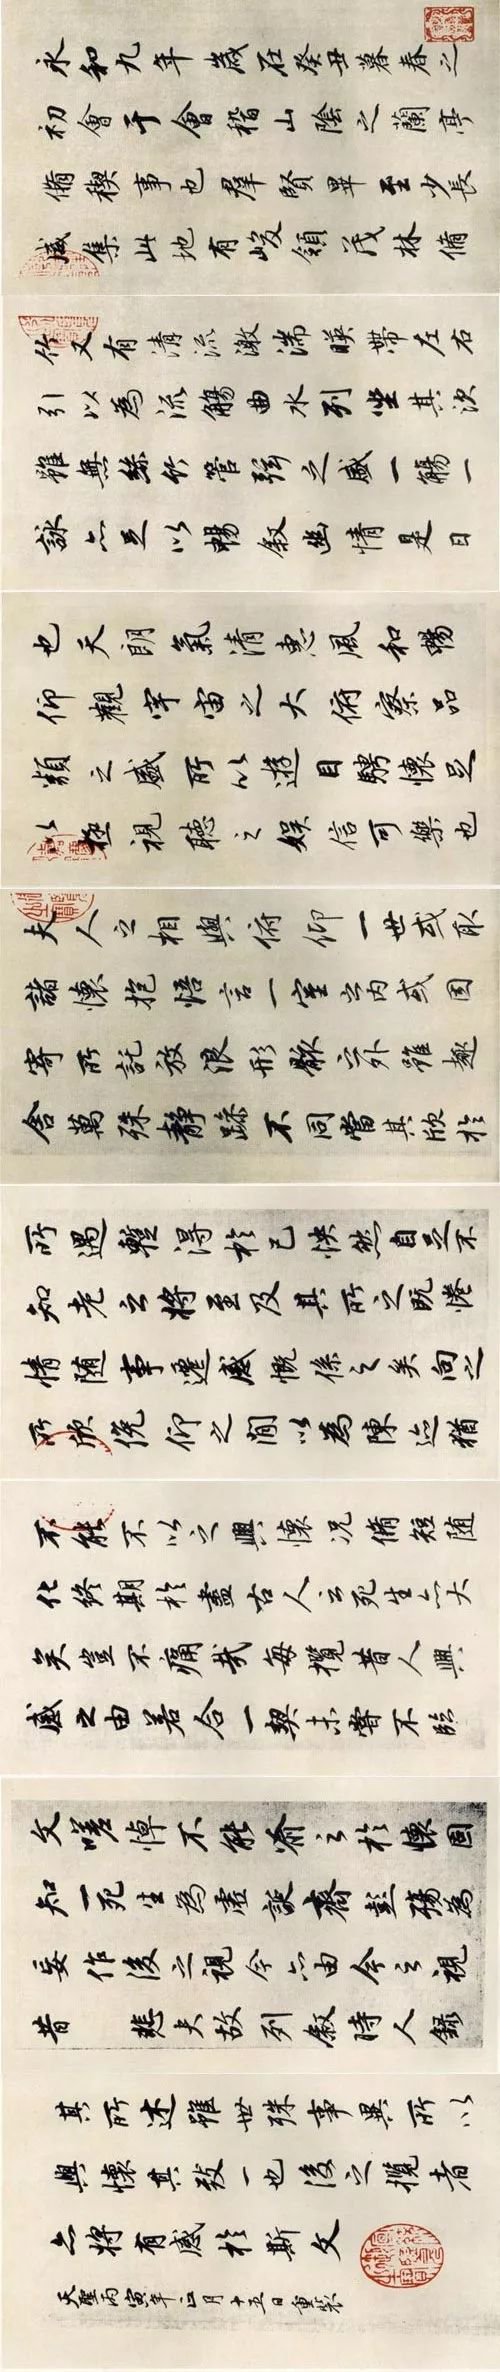 永和九年歲在癸丑暮春之
初會于會稽山陰之蘭亭
脩稧事也羣賢畢至少長
咸集此地有峻領茂林脩
竹又有清流激湍暎帶左右
引以為流觴曲水列坐其次
雖無絲竹管弦之盛一觴一
詠亦足以暢敘幽情是日
也天朗氣清惠風和暢
仰觀宇宙之大俯察品
類之盛所以遊目騁懷足
以極視聽之娛信可樂也
夫人之相與俯仰一世或取
諸懷抱悟言一室之内或因
寄所託放浪形骸之外雖趣
舍萬殊靜躁不同當其欣於
所遇暫得於己怏然自足不
知老之將至及其所之既惓
情随事遷感慨係之矣向之
所欣俛仰之閒以為陳迹猶
不能不以之興懷况脩短随
化終期於盡古人云死生亦大
矣豈不痛哉每攬昔人興
感之由若合一契未嘗不臨
文嗟悼不能喻之於懷固
知一死生為虛誕齊彭殤為
妄作後之視今亦由今之視
昔 悲夫故列敘時人錄
其所述雖世殊事異所以
興懷其致一也後之攬者
亦將有感於斯文
天聖丙寅年正月十五日重裝